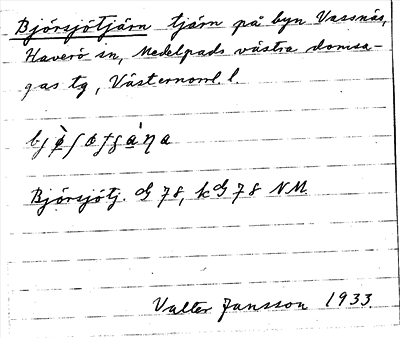 Björsjötjärn tjärn på byn Vassnäs,
Haverö sn, Medelpads västra domsa-
gas tg, Västernorrl. l
Björsjötj. G 78, kG 78 NM.
Valter Jansson 1933.